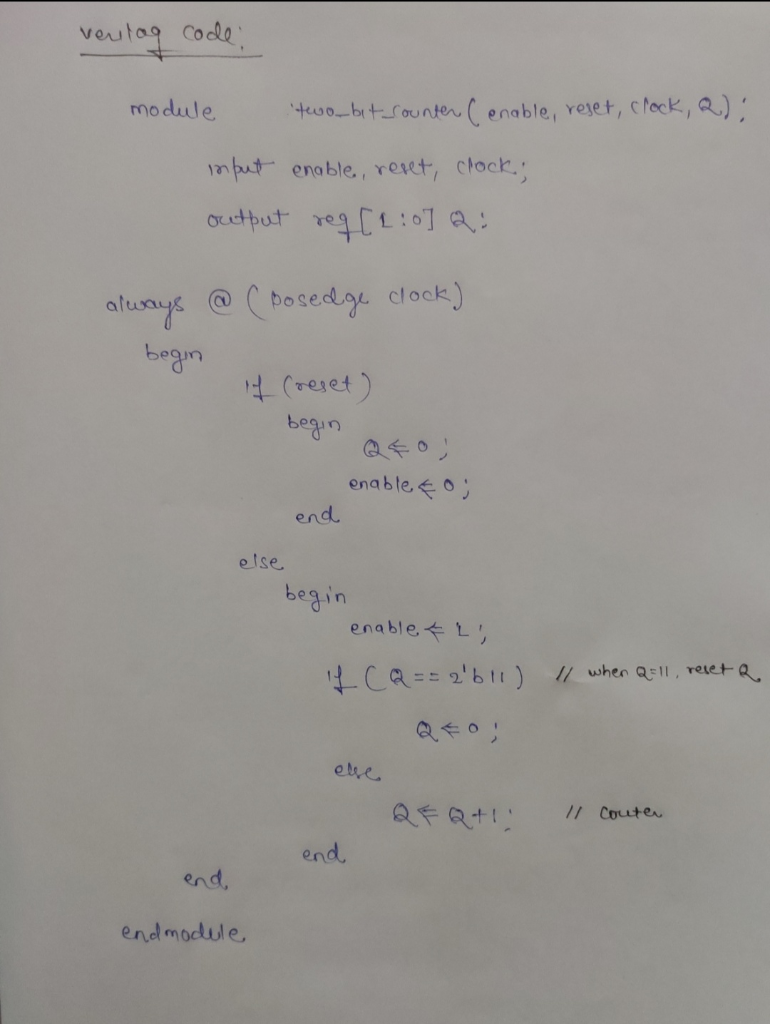 verilog code:
module two_bit_counter ( enable, reset, clock, Q);
input enable, reset, clock;
output reg [1:0] Q;
always @ ( posedge clock)
begin
if (reset)
begin
Q <= 0;
enable <= 0;
end
else
begin
enable <= 1;
if ( Q == 2'b11) // when Q=11, reset Q
Q <= 0;
else
Q <= Q+1; // couter
end
end
endmodule